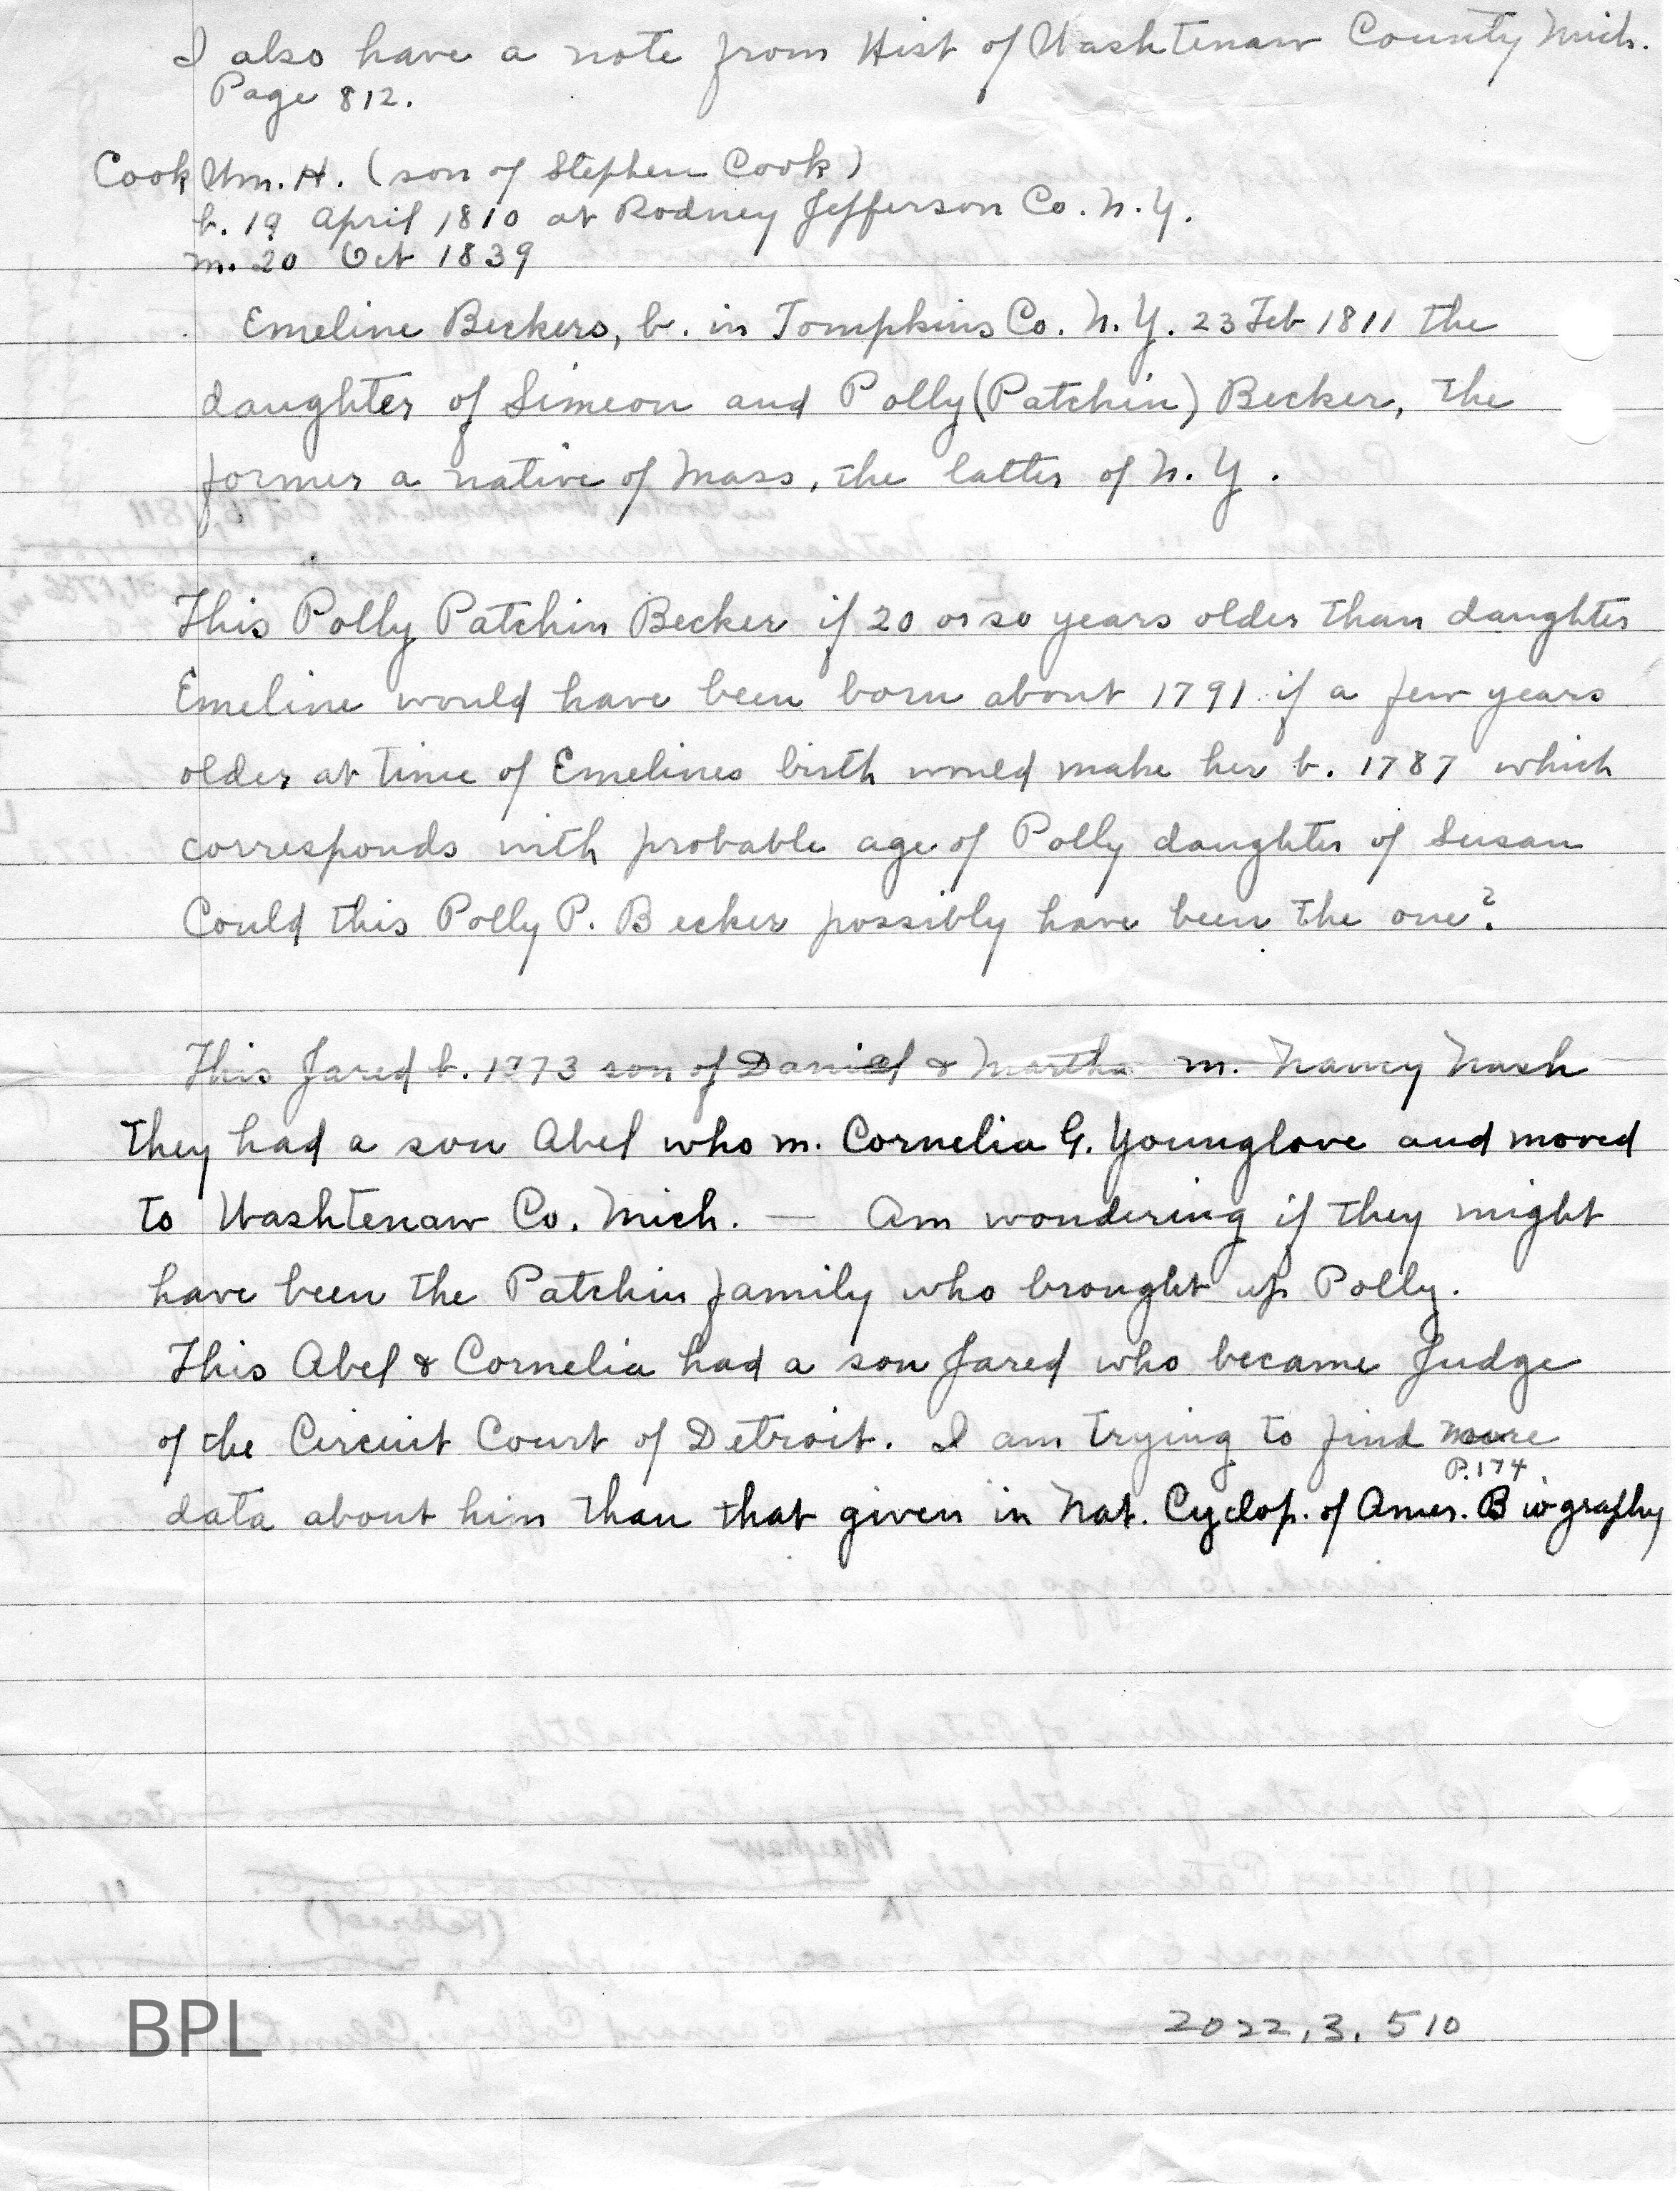 I also have a note from Hist of Washtenaw County Mich.
Page 812.
Cook Wm. H. (son of Stephen Cook)
b. 19 April 1810 at Rodney Jefferson Co. N.Y.
m. 20 Oct 1839
Emeline Beckers, b. in Tompkins Co. N.Y. 23 Feb 1811 the
daughter of Simeon and Polly (Patchin) Becker, the
former a native of Mass, the latter of N.Y.
This Polly Patchin Becker if 20 or so years older than daughter
Emeline would have been born about 1791 if a few years
older at time of Emelines birth would make her b. 1787 which
corresponds with probable age of Polly daughter of Susan
Could this Polly P. Becker possibly have been the one?
This Jared b. 1773 son of Daniel & Martha m. Nancy Nash
they had a son Abel who m. Cornelia G. Younglove and moved
to Washtenaw Co. Mich. — Am wondering if they might
have been the Patchin family who brought up Polly.
This Abel & Cornelia had a son Jared who became Judge
of the Circuit Court of Detroit. I am trying to find more
P. 174.
data about him than that given in Nat. Cyclop. of Amer. Biography
BPL
2022.3.510